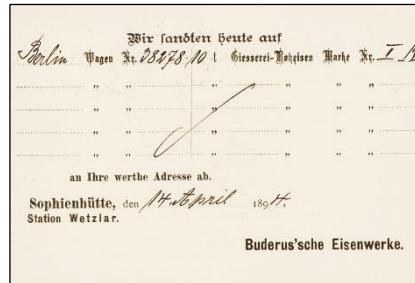 Wir sandten heute auf
Berlin Wagen Nr. 38278 10 t Giesserei-Roheisen Marke Nr. I
„ „ „ „ „ „
„ „ „ „ „ „
„ „ „ „ „ „
„ „ „ „ „ „
an Ihre werthe Adresse ab.
Sophienhütte, den 14. April 1894.
Station Wetzlar.
Buderus'sche Eisenwerke.